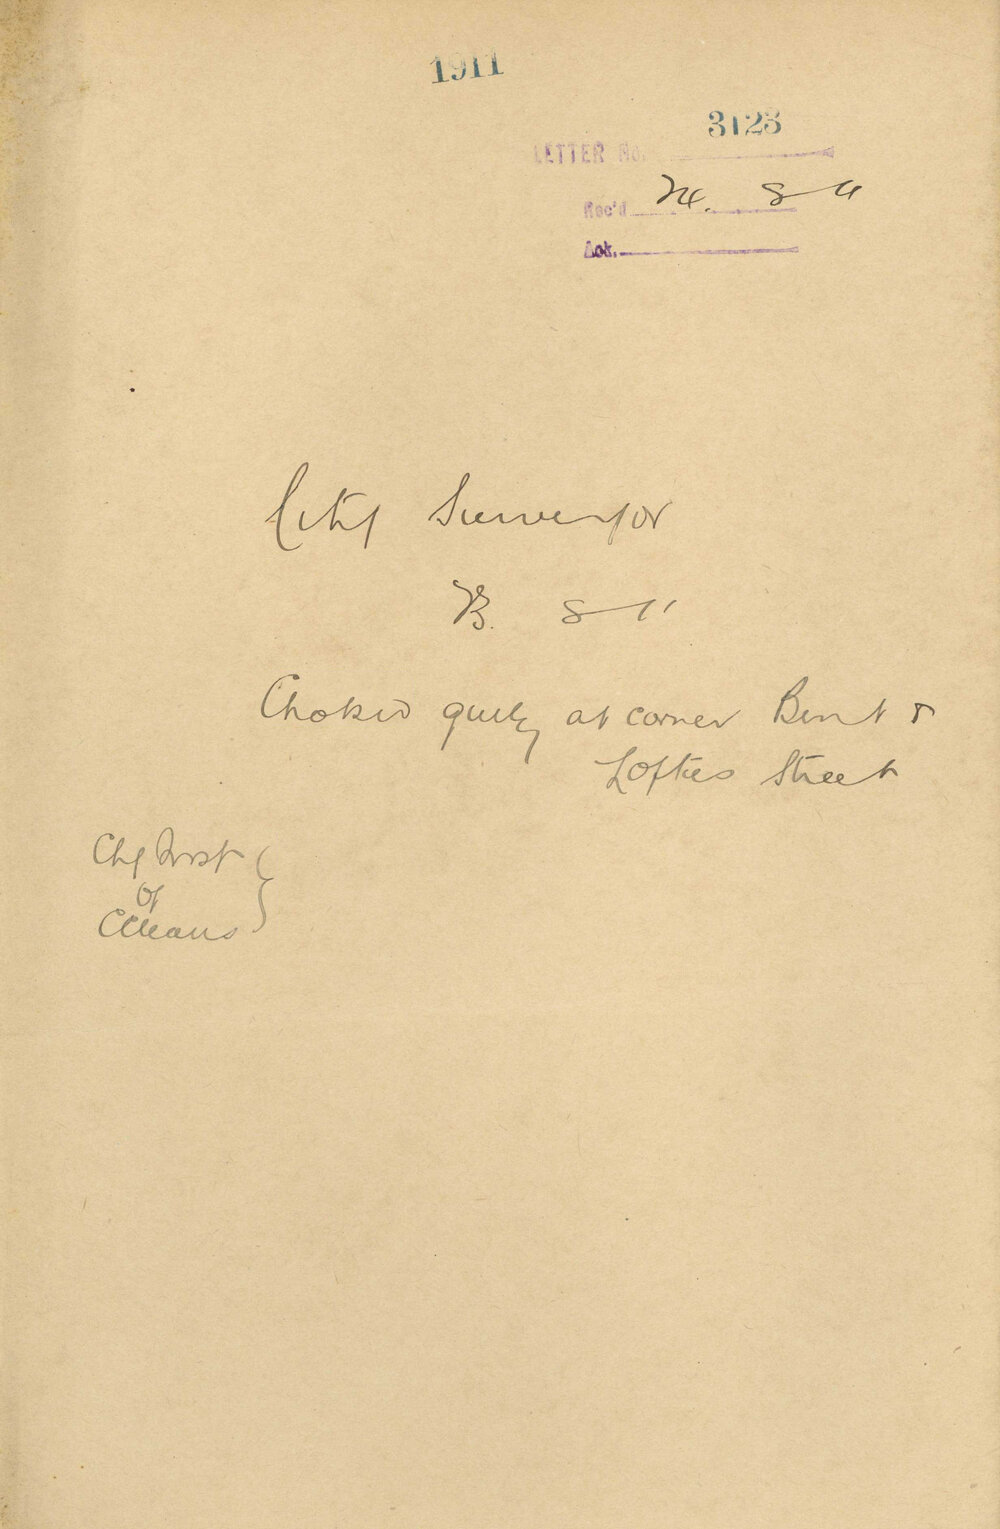 1911
3123
LETTER No.
Rec'd 24. 8 11
Ack.
City Surveyor
23. 8 11
Choked gully at corner Bent &
Loftus Street
City
of